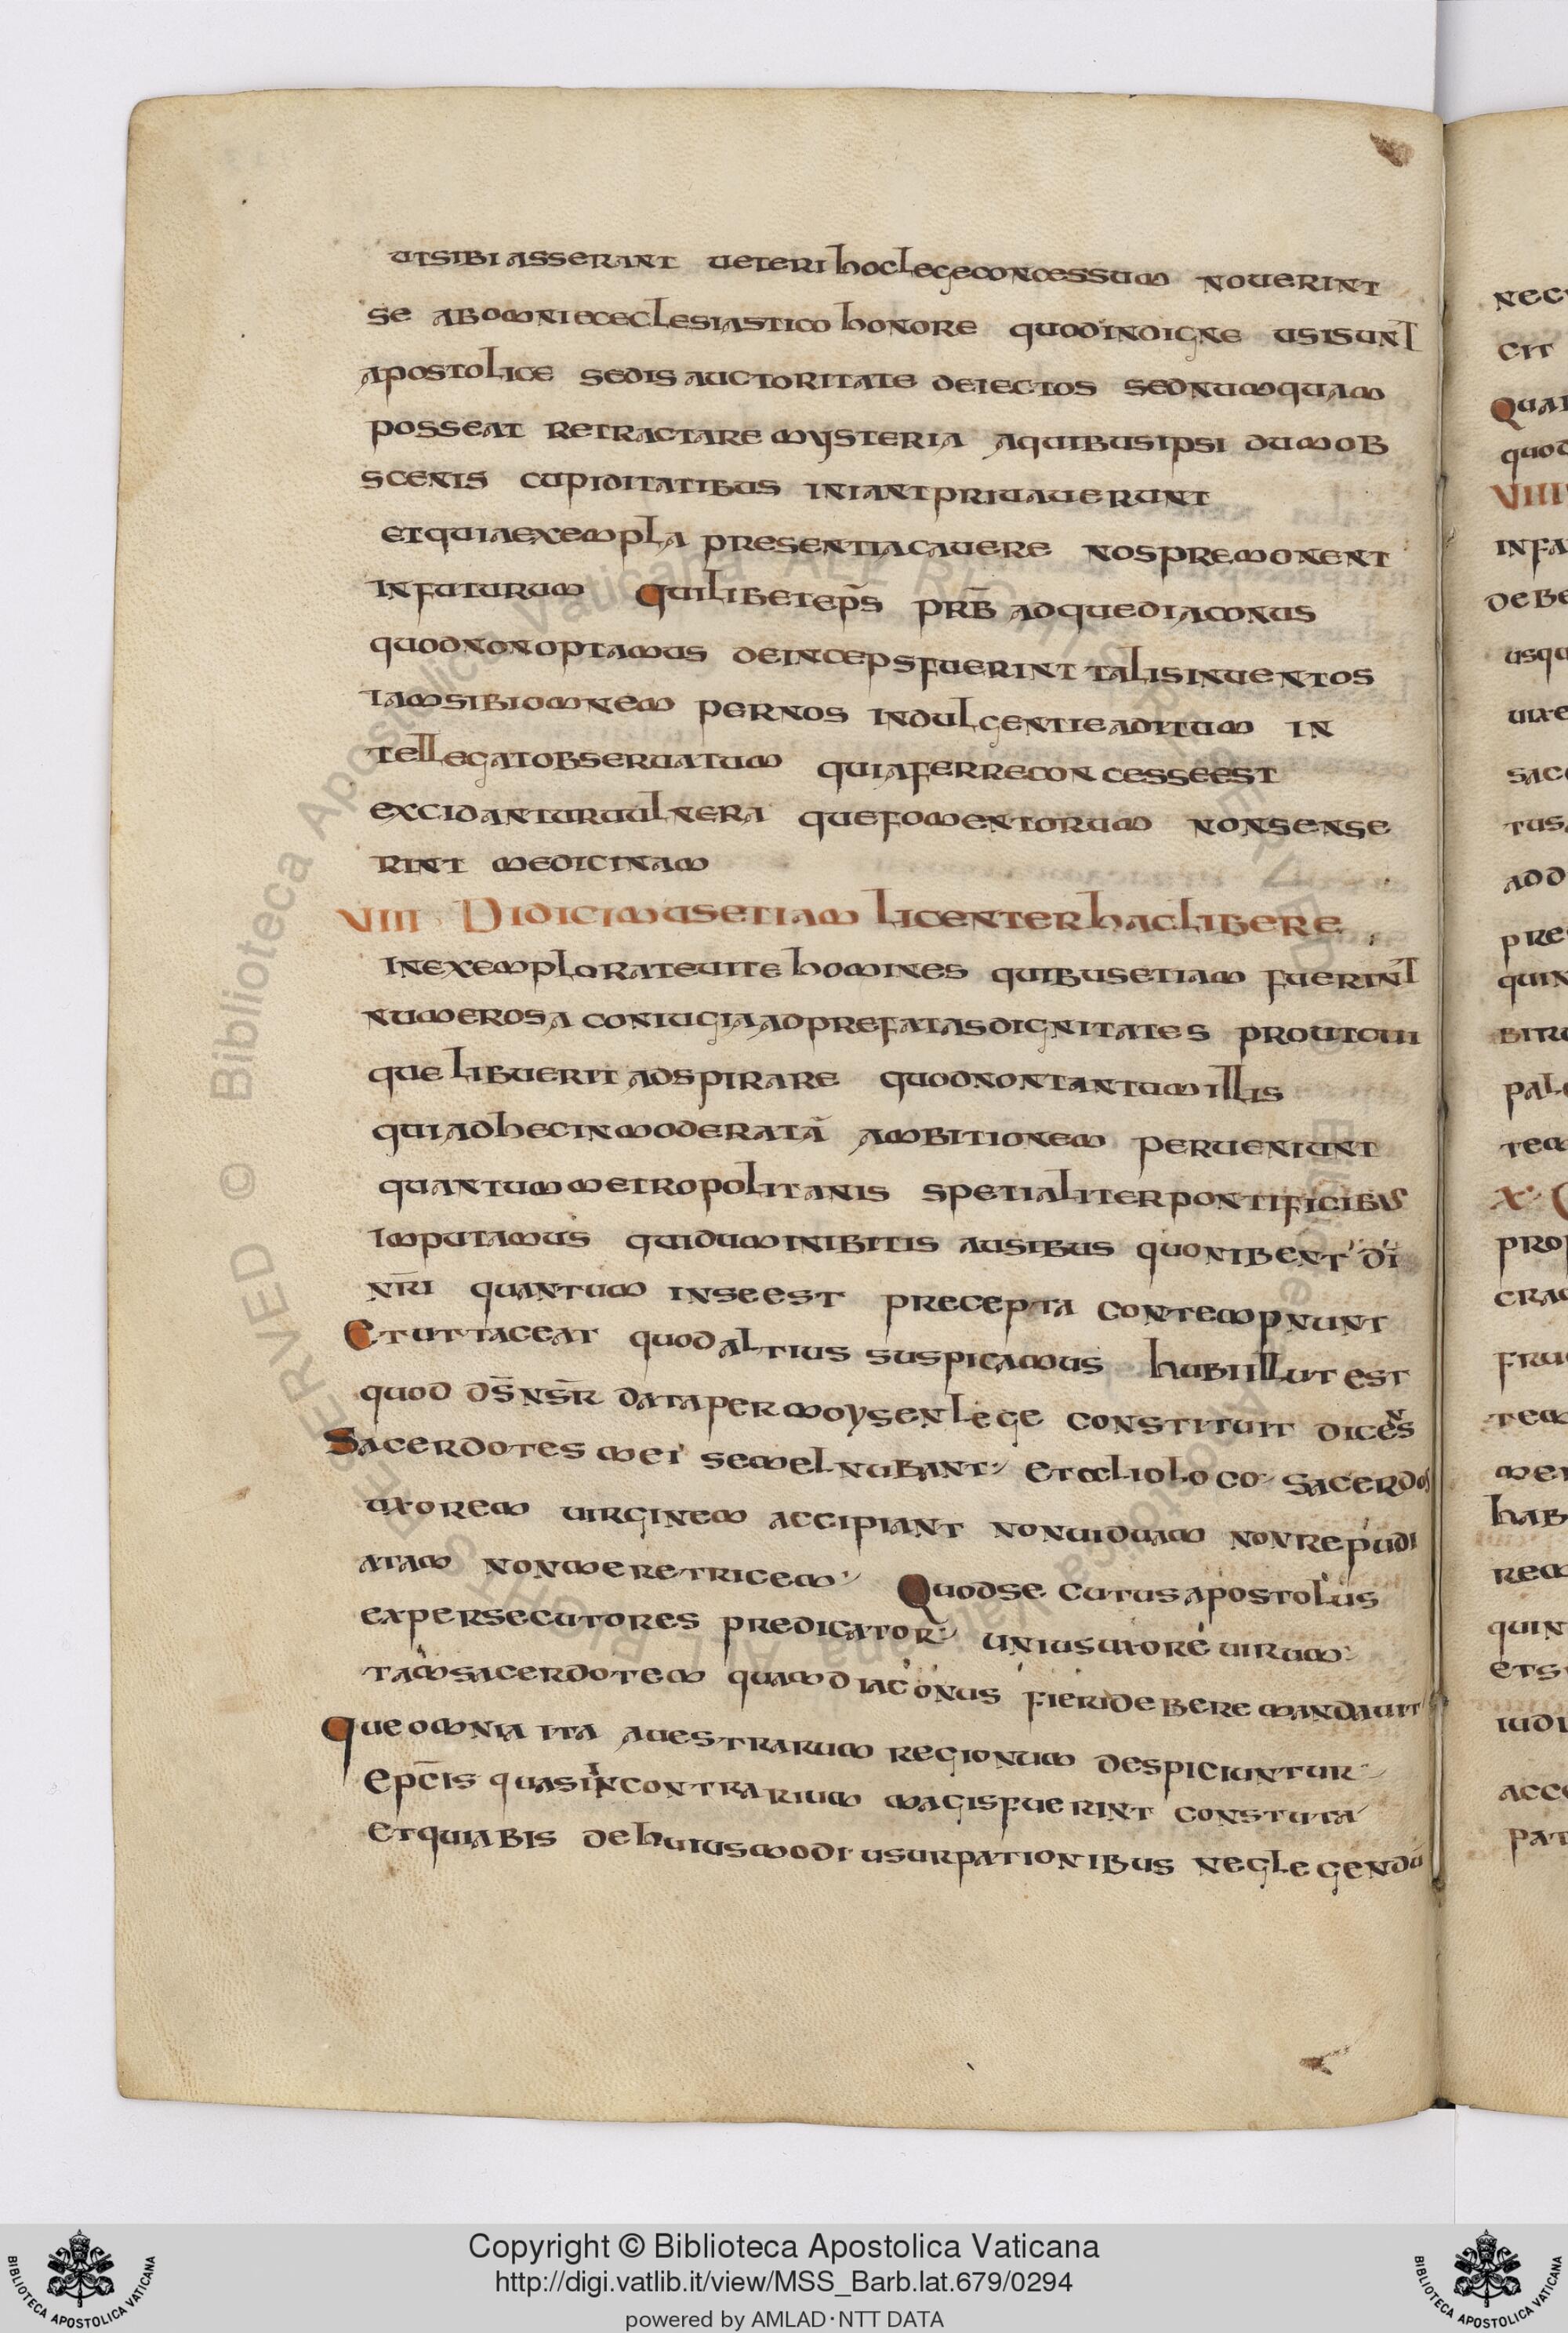 utsibi asserant ueteri hoc lege concessum nouerint
se ab omni ececlesiastico honore quod indigne usi sunt
apostolice sedis auctoritate deiectos sed numquam
posse at retractare mysteria a quibus ipsi dum ob
scenis cupiditatibus iniant priuauerunt
et quia exempla presentia cauere nos premonent
in futurum quilibet ep̄s prb̄ adque diaconus
quod non optamus deinceps fuerint talis inuentos
iam sibi omnem per nos indulgentie aditum in
tellegat obseruatum quia ferre concesse est
excidantur uulnera que fomentorum non sense
rint medicinam
VIII Didicimus etiam licenter hac libere
inexemplorate uite homines quibus etiam fuerint
numerosa coniugia ad prefatas dignitates prout cui
que libuerit adspirare quod non tantum illis
qui ad hec inmoderatā ambitionem perueniunt
quantum metropolitanis spetialiter pontificibus
imputamus qui dum inibitis ausibus quonibent dī
nr̄i quantum in se est precepta contempnunt
Et ut taceat quod altius suspicamus hubi illut est
quod ds̄ ns̄r data per moysen lege constituit dicens
Sacerdotes mei semel nubant et oclio loco sacerdos
uxorem uirginem accipiant non uiduam non repudi
atam non meretricem Quod secutus apostolus
ex persecutores predicator̄ unius uxorē uirum
tam sacerdotem quam diaconus fieri debere mandauit
Que omnia ita a uestrarum regionum despiciuntur
epc̄is quasi in contrarium magis fuerint constuta
et quia bis de huiusmodi usurpationibus neglegendū
Copyright © Biblioteca Apostolica Vaticana
http://digi.vatlib.it/view/MSS_Barb.lat.679/0294
powered by AMLAD·NTT DATA